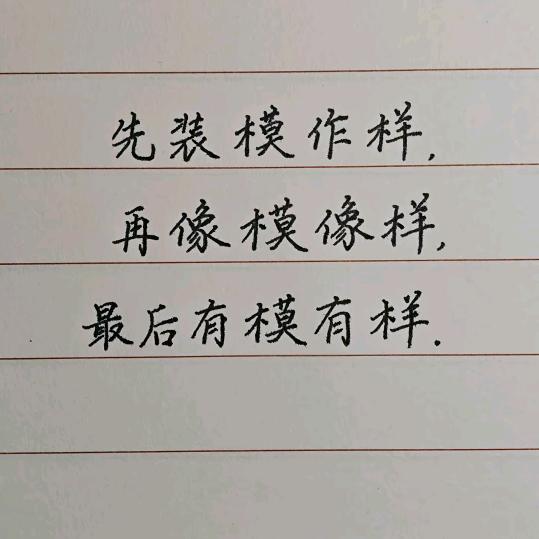 先装模作样,
再像模像样,
最后有模有样.